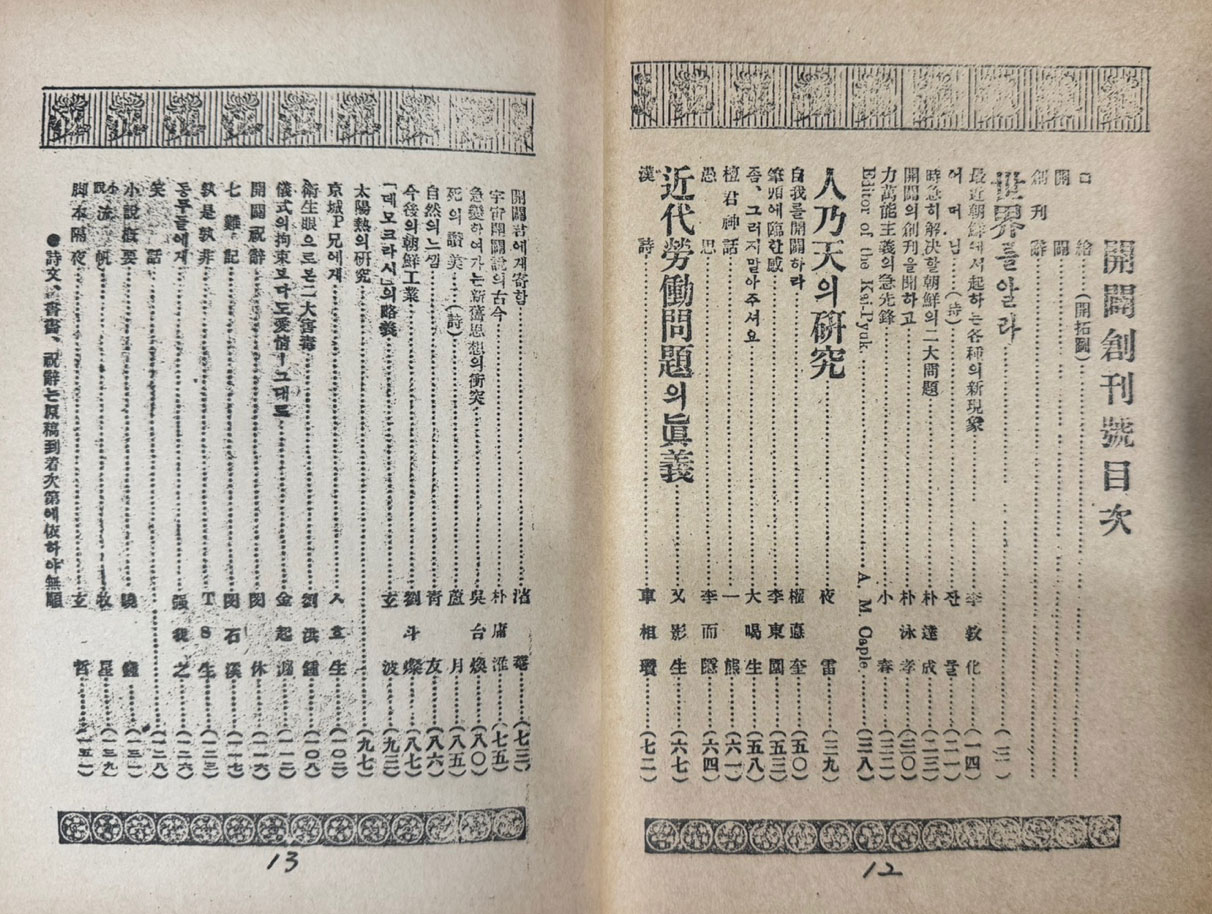 開闢創刊號目次
口繪(開拓圖)
開闢
創刊辭
世界를알라 (三)
最近朝鮮에서起하는各種의新現象 李敦化 (一四)
어머님(詩) 잔물 (二一)
時急히解決할朝鮮의二大問題 朴達成 (二三)
開闢의創刊을聞하고 朴泳孝 (三〇)
力萬能主義의急先鋒 小春 (三二)
Editor of the Kai-Pyuk. A. M. Caple. (三八)
人乃天의硏究 夜雷 (三九)
自我를開闢하라 權悳奎 (五〇)
筆頭에臨한感 李東園 (五三)
좀、그러지말아주셔요 大喝生 (五八)
檀君神話 一熊 (六一)
愚思 李而隱 (六四)
近代勞働問題의眞義 又影生 (六七)
漢詩 車相瓚 (七二)
開闢君에게寄함 菴 (七三)
宇宙開闢說의古今 朴庸淮 (七五)
急變하여가는新舊思想의衝突 吳台煥 (八〇)
死의讚美(詩) 蘆月 (八五)
自然의느낌 靑友 (八六)
今後의朝鮮工業 劉斗燦 (八七)
「데모크라시」의略義 玄波 (九三)
太陽熱의硏究 (九七)
京城P兄에게 生 (一〇二)
衛生眼으로본二大害毒 劉洪鍾 (一〇八)
儀式의拘束보다도愛情!그대로 金起瀍 (一一二)
開闢祝辭 閔休 (一一六)
七難記 閔石溪 (一一七)
孰是孰非 TS生 (一二三)
동무들에게 强我之 (一二六)
笑話 (一二八)
小說槪要 曉鍾 (一三一)
小說流帆 牧星 (一三九)
脚本隔夜 玄哲 (一五一)
●詩文、書畵、祝辭는原稿到着次第에依하야無順
13
12